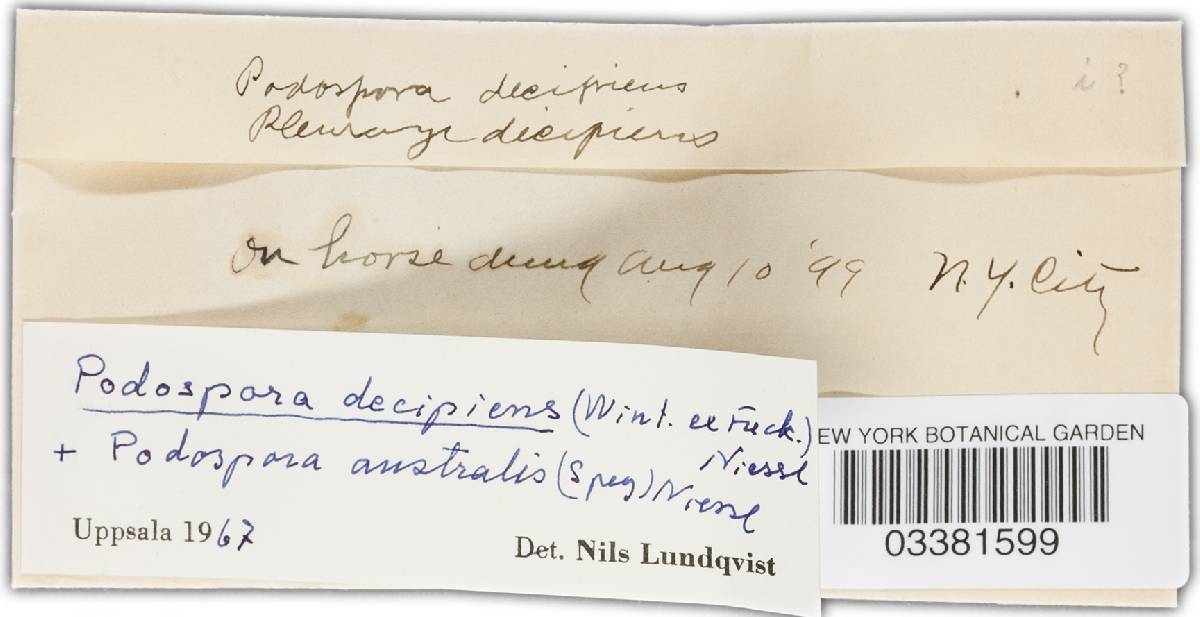 Podospora decipiens
i?
Pleurage decipiens
on horse dung Aug 10 '99 N.Y. City
Podospora decipiens (Wint. ex Fuck.) Niessl
+ Podospora australis (Speg) Niessl
Uppsala 1967
Det. Nils Lundqvist
EW YORK BOTANICAL GARDEN
03381599